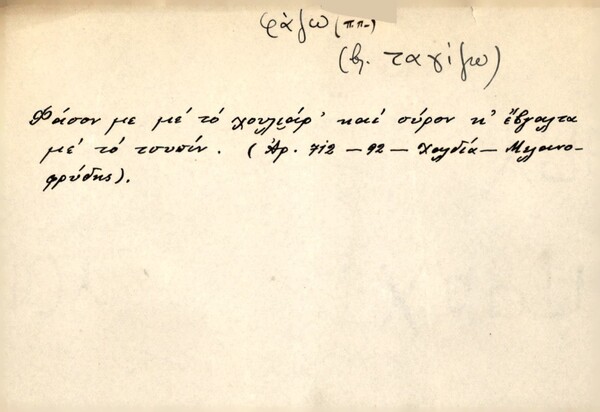 φάζω (ππ.)
(βλ. ταγίζω)
Φάσον με μέ τό χουλιάρ' καί σύρον κ' ἔβγαλτα
μέ τό τσυσίν. (Ἀρ. 712 – 92 – Χαλδία – Μελανο-
φρύδης).